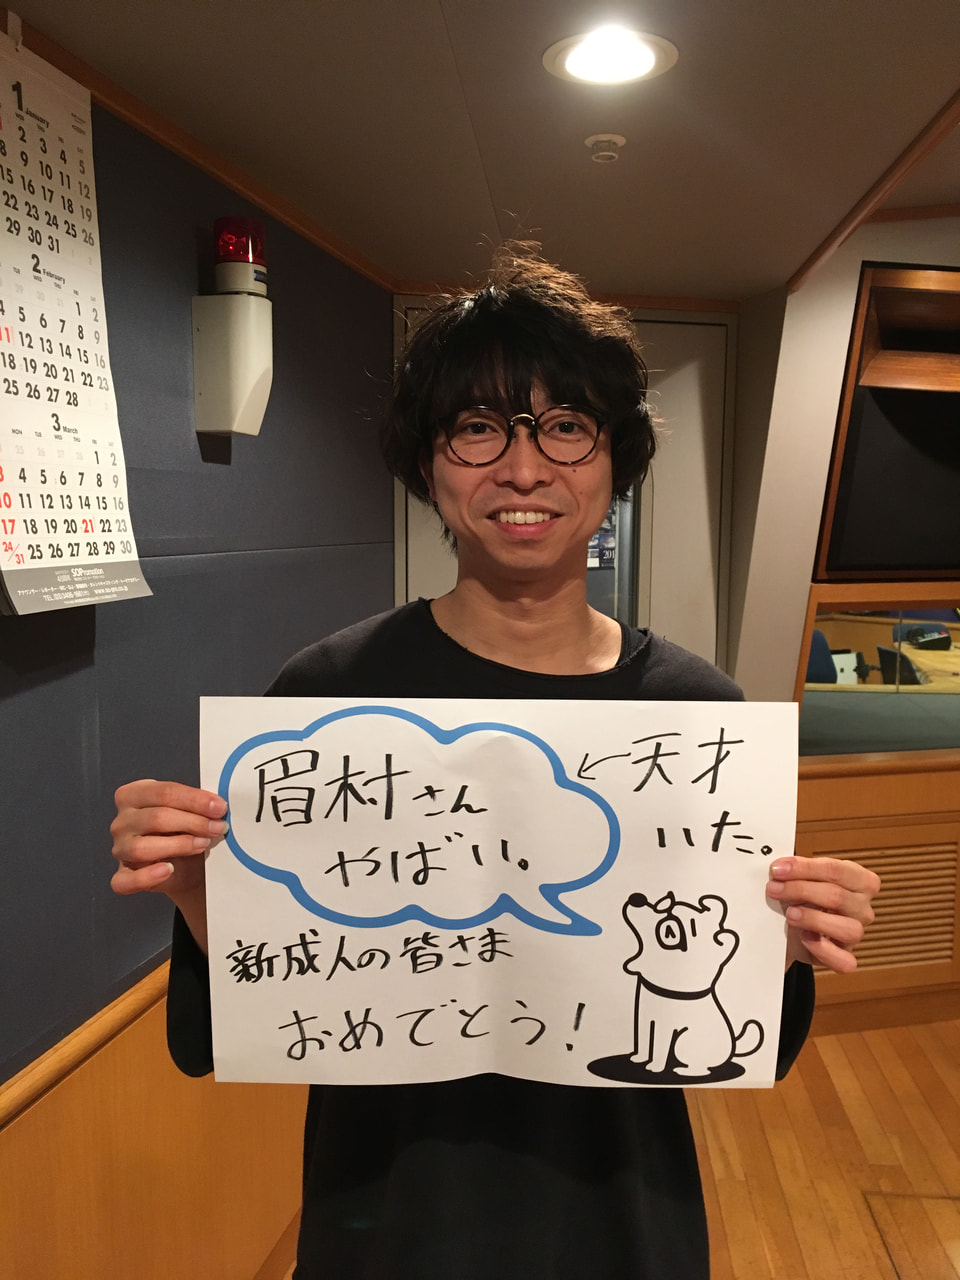 眉村さん
やばい。
←天才
いた。
新成人の皆さま
おめでとう！
1 January
2 3 4 5
8 9 10 11 12
15 16 17 18 19
22 23 24 25 26
29 30 31
2 February
1 2
4 5 6 7 8 9
11 12 13 14 15 16
18 19 20 21 22 23
25 26 27 28
3 March
MON TUE WED THU FRI SAT
1 2
3 4 5 6 7 8 9
10 11 12 13 14 15 16
17 18 19 20 21 22 23
24/31 25 26 27 28 29 30
SOPromotion